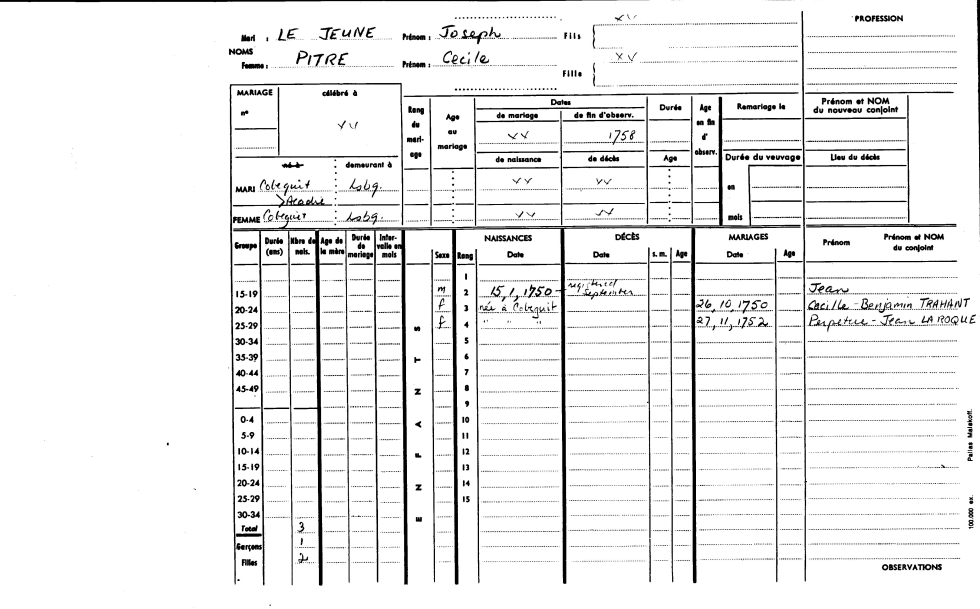 xv PROFESSION
Mari : LE JEUNE Prénom : Joseph Fils
NOMS
Femme : PITRE Prénom : Cecile Fille xv
MARIAGE célébré à
n°
Rang du mari- age
Age au mariage
Dates
de mariage de fin d'observ.
Durée
Age en fin d' observ.
Remariage le
Prénom et NOM du nouveau conjoint
1758
né à demeurant à
de naissance de décès Age Durée du veuvage Lieu du décès
MARI Cobeguit Lsbg. en
Acadie
FEMME Cobeguit Lsbg. mois
Groupe Durée (ans) Nbre de nais. Age de la mère Durée de mariage Inter- valle en mois
ENFANTS
Sexe Rang
NAISSANCES Date
DÉCÈS Date s. m. Age
MARIAGES Date Age
Prénom Prénom et NOM du conjoint
1
15-19 m 2 15,1,1750 - registered September Jean
20-24 f 3 née à Cobeguit 26,10,1750 Cecille - Benjamin TRAHANT
25-29 f 4 " " " 27,11,1752 Perpetue - Jean LA ROQUE
30-34 5
35-39 6
40-44 7
45-49 8
9
0-4 10
5-9 11
10-14 12
15-19 13
20-24 14
25-29 15
30-34
Total 3
Garçons 1
Filles 2
OBSERVATIONS
100.000 ex. Pallas Malakoff.